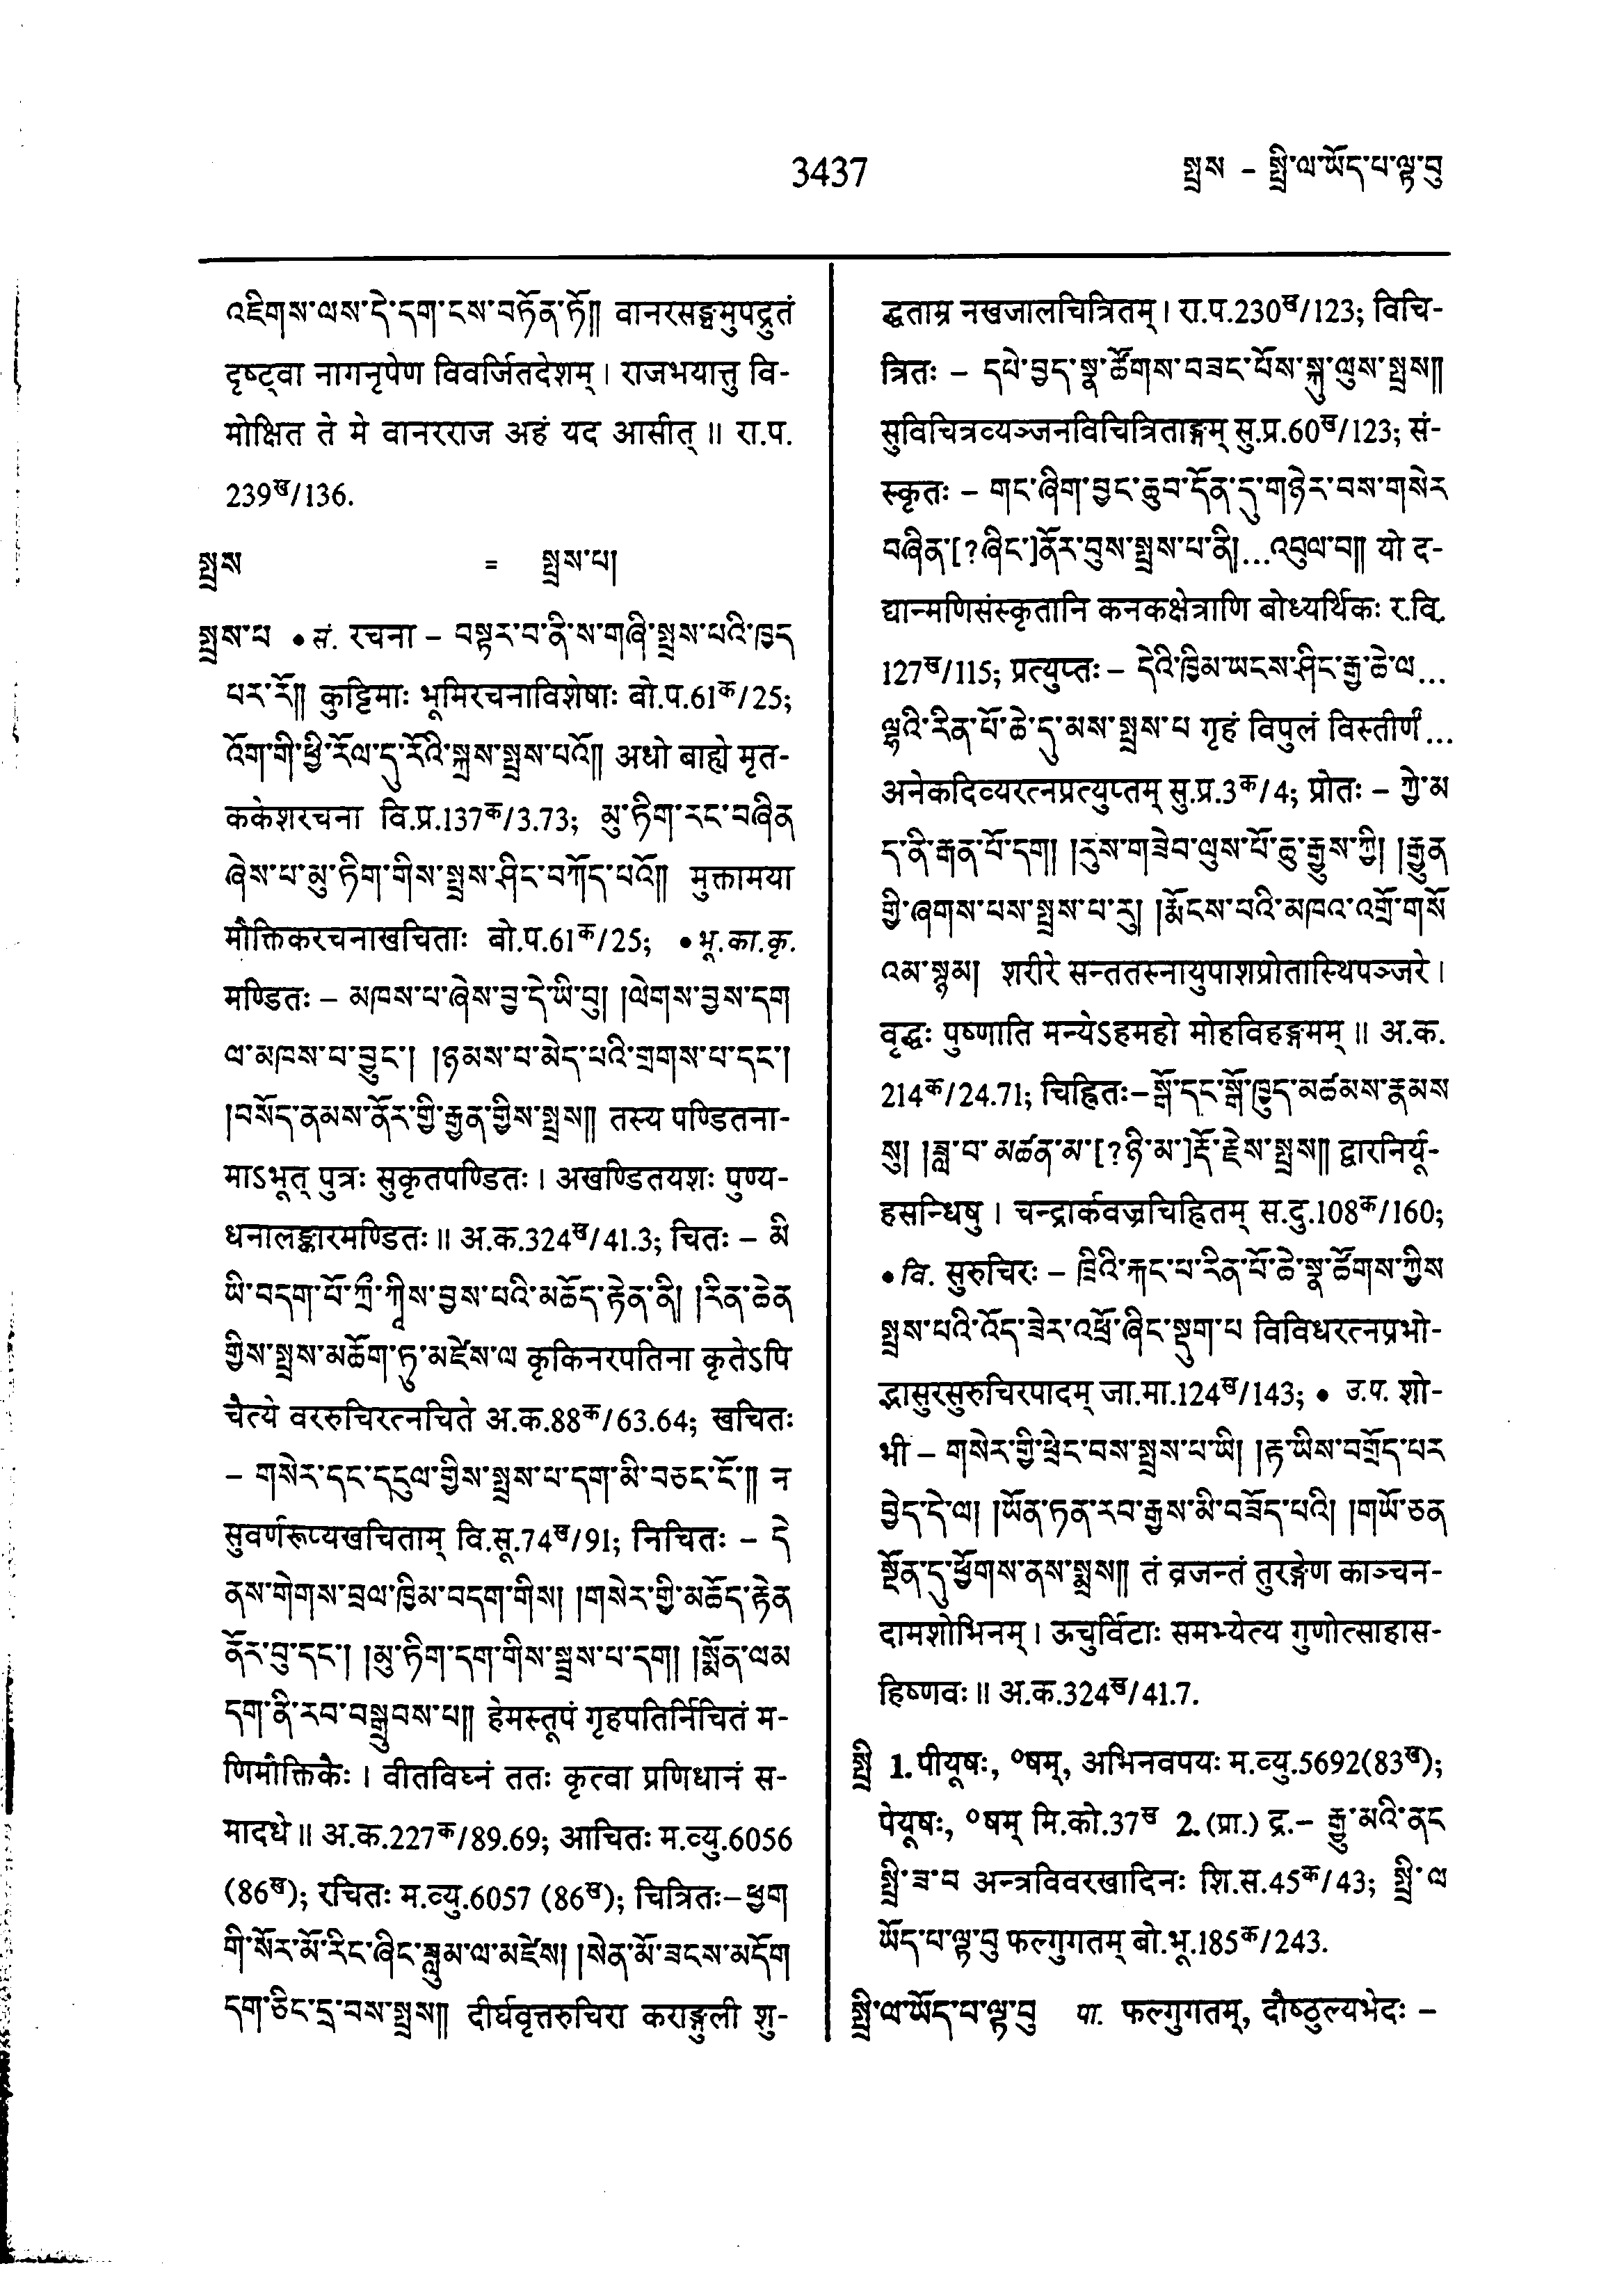 3437
སྤྲས – སྤྲི་ལ་ཡོད་པ་ལྟ་བུ
འཇིགས་ལས་དེ་དག་ངས་བཏོན་ཏོ།། वानरसङ्घमुपद्रुतं
दृष्ट्वा नागनृपेण विवर्जितदेशम्। राजभयात्तु वि-
मोक्षित ते मे वानरराज अहं यद आसीत्॥ रा.प.
239ख/136.
སྤྲས = སྤྲས་པ།
སྤྲས་པ • सं. रचना – བསྟར་བ་ནི་ས་གཞི་སྤྲས་པའི་ཁྱད
པར་རོ།། कुट्टिमाः भूमिरचनाविशेषाः बो.प.61क/25;
འོག་གི་ཕྱི་རོལ་དུ་རོའི་སྐྲས་སྤྲས་པའོ།། अधो बाह्ये मृत-
ककेशरचना वि.प्र.137क/3.73; མུ་ཏིག་རང་བཞིན
ཞེས་པ་མུ་ཏིག་གིས་སྤྲས་ཤིང་བཀོད་པའོ།། मुक्तामया
मौक्तिकरचनाखचिताः बो.प.61क/25; • भू.का.कृ.
मण्डितः – མཁས་པ་ཞེས་བྱ་དེ་ཡི་བུ། །ལེགས་བྱས་དག
ལ་མཁས་པ་བྱུང་། །ཉམས་པ་མེད་པའི་གྲགས་པ་དང་།
།བསོད་ནམས་ནོར་གྱི་རྒྱན་གྱིས་སྤྲས།། तस्य पण्डितना-
माऽभूत् पुत्रः सुकृतपण्डितः। अखण्डितयशः पुण्य-
धनालङ्कारमण्डितः॥ अ.क.324ख/41.3; चितः – མི
ཡི་བདག་པོ་ཀྲྀ་ཀཱིས་བྱས་པའི་མཆོད་རྟེན་ནི། །རིན་ཆེན
གྱིས་སྤྲས་མཆོག་ཏུ་མཛེས་ལ कृकिनरपतिना कृतेऽपि
चैत्ये वररुचिरत्नचिते अ.क.88क/63.64; खचितः
– གསེར་དང་དངུལ་གྱིས་སྤྲས་པ་དག་མི་བཅང་ངོ་།། न
सुवर्णरूप्यखचिताम् वि.सू.74ख/91; निचितः – དེ
ནས་གེགས་བྲལ་ཁྱིམ་བདག་གིས། །གསེར་གྱི་མཆོད་རྟེན
ནོར་བུ་དང་། །མུ་ཏིག་དག་གིས་སྤྲས་པ་དག། །སྨོན་ལམ
དག་ནི་རབ་བསྒྲུབས་པ།། हेमस्तूपं गृहपतिर्निचितं म-
णिमौक्तिकैः। वीतविघ्नं ततः कृत्वा प्रणिधानं स-
मादधे॥ अ.क.227क/89.69; आचितः म.व्यु.6056
(86ख); रचितः म.व्यु.6057 (86ख); चित्रितः – ཕྱག
གི་སོར་མོ་རིང་ཞིང་ཟླུམ་ལ་མཛེས། །སེན་མོ་ཟངས་མདོག
དག་ཅིང་དྲ་བས་སྤྲས།། दीर्घवृत्तरुचिरा कराङ्गुली शु-
द्धताम्र नखजालचित्रितम्। रा.प.230ख/123; विचि-
त्रितः – དཔེ་བྱད་སྣ་ཚོགས་བཟང་པོས་སྐུ་ལུས་སྤྲས།།
सुविचित्रव्यञ्जनविचित्रिताङ्गम् सु.प्र.60ख/123; सं-
स्कृतः – གང་ཞིག་བྱང་ཆུབ་དོན་དུ་གཉེར་བས་གསེར
བཞིན་[?ཞིང་]ནོར་བུས་སྤྲས་པ་ནི།...འབུལ་བ།། यो द-
द्यान्मणिसंस्कृतानि कनकक्षेत्राणि बोध्यर्थिकः र.वि.
127ख/115; प्रत्युप्तः – དེའི་ཁྱིམ་ཡངས་ཤིང་རྒྱ་ཆེ་ལ...
ལྷའི་རིན་པོ་ཆེ་དུ་མས་སྤྲས་པ गृहं विपुलं विस्तीर्णं...
अनेकदिव्यरत्नप्रत्युप्तम् सु.प्र.3क/4; प्रोतः – ཀྱེ་མ
ད་ནི་རྒན་པོ་དག། །རུས་གཟེབ་ལུས་པོ་ཆུ་རྒྱུས་ཀྱི། །རྒྱུན
གྱི་ཞགས་པས་སྤྲས་པ་རུ། །རྨོངས་པའི་མཁའ་འགྲོ་གསོ
འམ་སྙམ། शरीरे सन्ततस्नायुपाशप्रोतास्थिपञ्जरे।
वृद्धः पुष्णाति मन्येऽहमहो मोहविहङ्गमम्॥ अ.क.
214क/24.71; चिह्नितः – སྒོ་དང་སྒོ་ཁྱུད་མཚམས་རྣམས
སུ། །ཟླ་བ་ མཚན་མ་[?ཉི་མ་]རྡོ་རྗེས་སྤྲས།། द्वारनिर्यू-
हसन्धिषु। चन्द्रार्कवज्रचिह्नितम् स.दु.108क/160;
• वि. सुरुचिरः – ཁྲིའི་རྐང་པ་རིན་པོ་ཆེ་སྣ་ཚོགས་ཀྱིས
སྤྲས་པའི་འོད་ཟེར་འཕྲོ་ཞིང་སྡུག་པ विविधरत्नप्रभो-
द्भासुरसुरुचिरपादम् जा.मा.124ख/143; • उ.प. शो-
भी – གསེར་གྱི་ཕྲེང་བས་སྤྲས་པ་ཡི། །རྟ་ཡིས་བགྲོད་པར
བྱེད་དེ་ལ། །ཡོན་ཏན་རབ་རྒྱས་མི་བཟོད་པའི། །གཡོ་ཅན
སྔོན་དུ་ཕྱོགས་ནས་སྨྲས།། तं व्रजन्तं तुरङ्गेण काञ्चन-
दामशोभिनम्। ऊचुर्विटाः समभ्येत्य गुणोत्साहास-
हिष्णवः॥ अ.क.324ख/41.7.
སྤྲི 1. पीयूषः, ०षम्, अभिनवपयः म.व्यु.5692(83ख);
पेयूषः, ०षम् मि.को.37ख 2. (प्रा.) द्र.– རྒྱུ་མའི་ནང
སྤྲི་ཟ་བ अन्त्रविवरखादिनः शि.स.45क/43; སྤྲི་ལ
ཡོད་པ་ལྟ་བུ फल्गुगतम् बो.भू.185क/243.
སྤྲི་ལ་ཡོད་པ་ལྟ་བུ पा. फल्गुगतम्, दौष्ठुल्यभेदः –